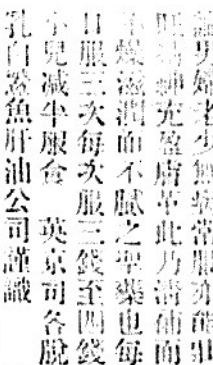 男婦老少無病常服亦能
精神充盈膚革此乃清補而
不燥滋潤而不膩之聖藥也每
日服三次每次服三錢至四錢
小兒減半服食 英京司各脫
乳白鰵魚肝油公司謹識